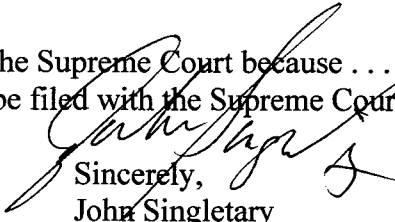 he Supreme Court because . . .
be filed with the Supreme Cour
Sincerely,
John Singletary